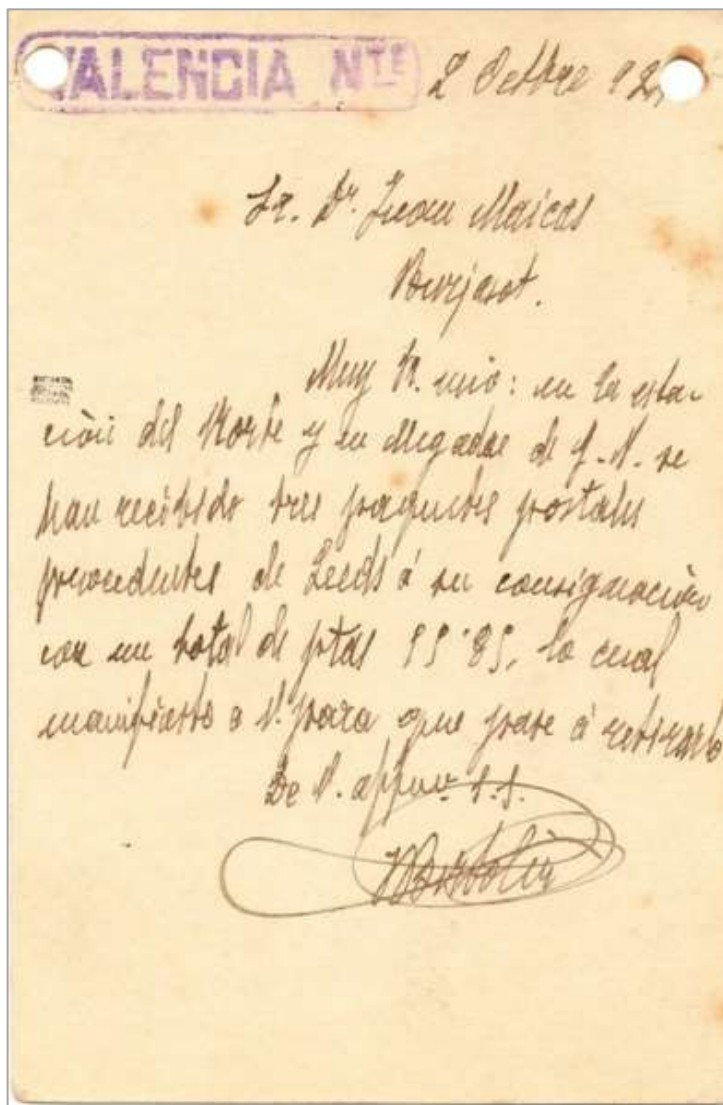 VALENCIA NTE 2 Octbre 192
Sr. Dn. Juan Maicas
Burjasot.
Muy Sr. mio: en la esta-
ción del Norte y en llegadas de G.V. se
han recibido tres paquetes postales
procedentes de Leeds á su consignación
con un total de ptas 99'85, lo cual
manifiesto a V. para que pase á retirarlo
De V. affmo. s.s.